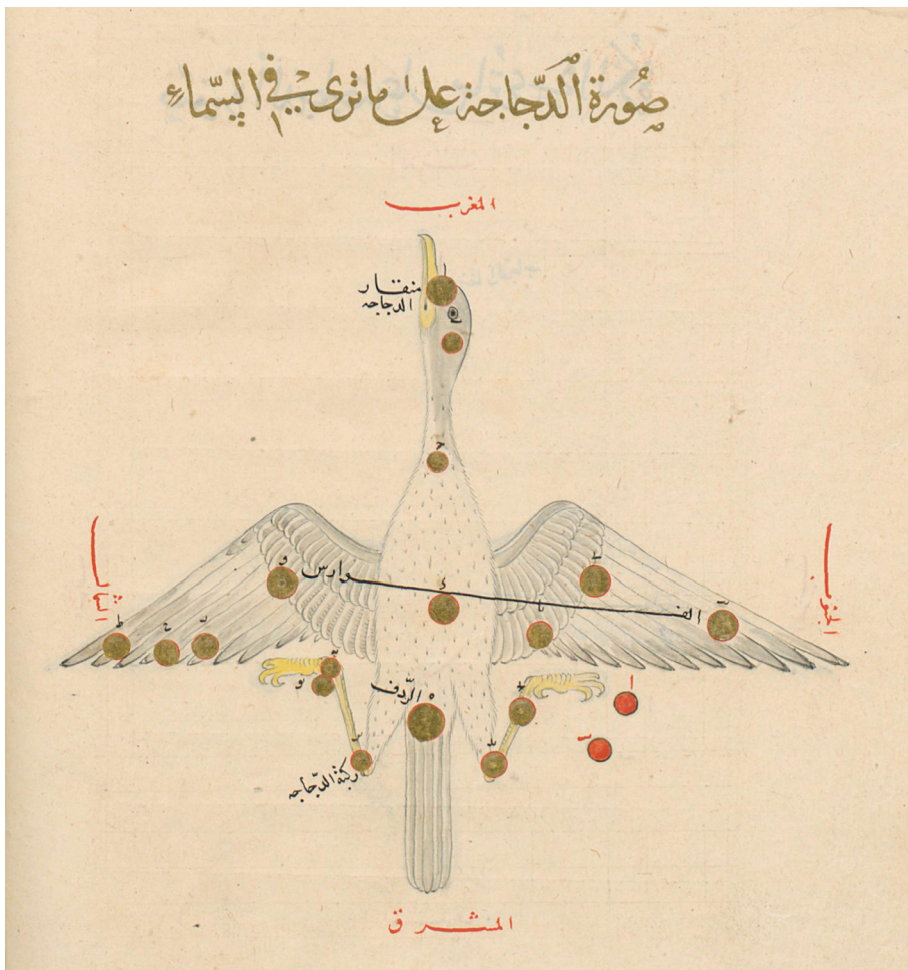 صُورة الدَّجاجة على ما ترى في السَّماء
المغرب
منقار
الدجاجه
الشمال
الفوارس
الجنوب
الرّدف
ركبة الدّجاجه
المشرق